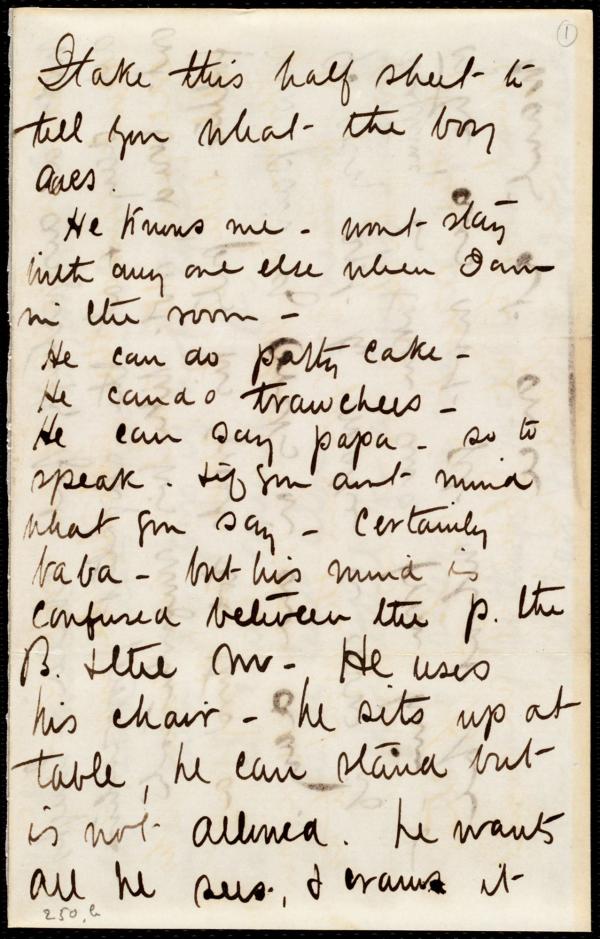 1
I take this half sheet to
tell you what the boy
does.
He knows me - wont stay
with any one else when I am
in the room -
He can do patty cake -
He can do trawchees -
He can say papa - so to
speak. & if you ain't mind
what you say - Certainly
baba - but his mind is
confused between the p. the
B. & the M - He uses
his chair - he sits up at
table, he can stand but
is not allowed. he wants
all he sees, & crams it
250, b